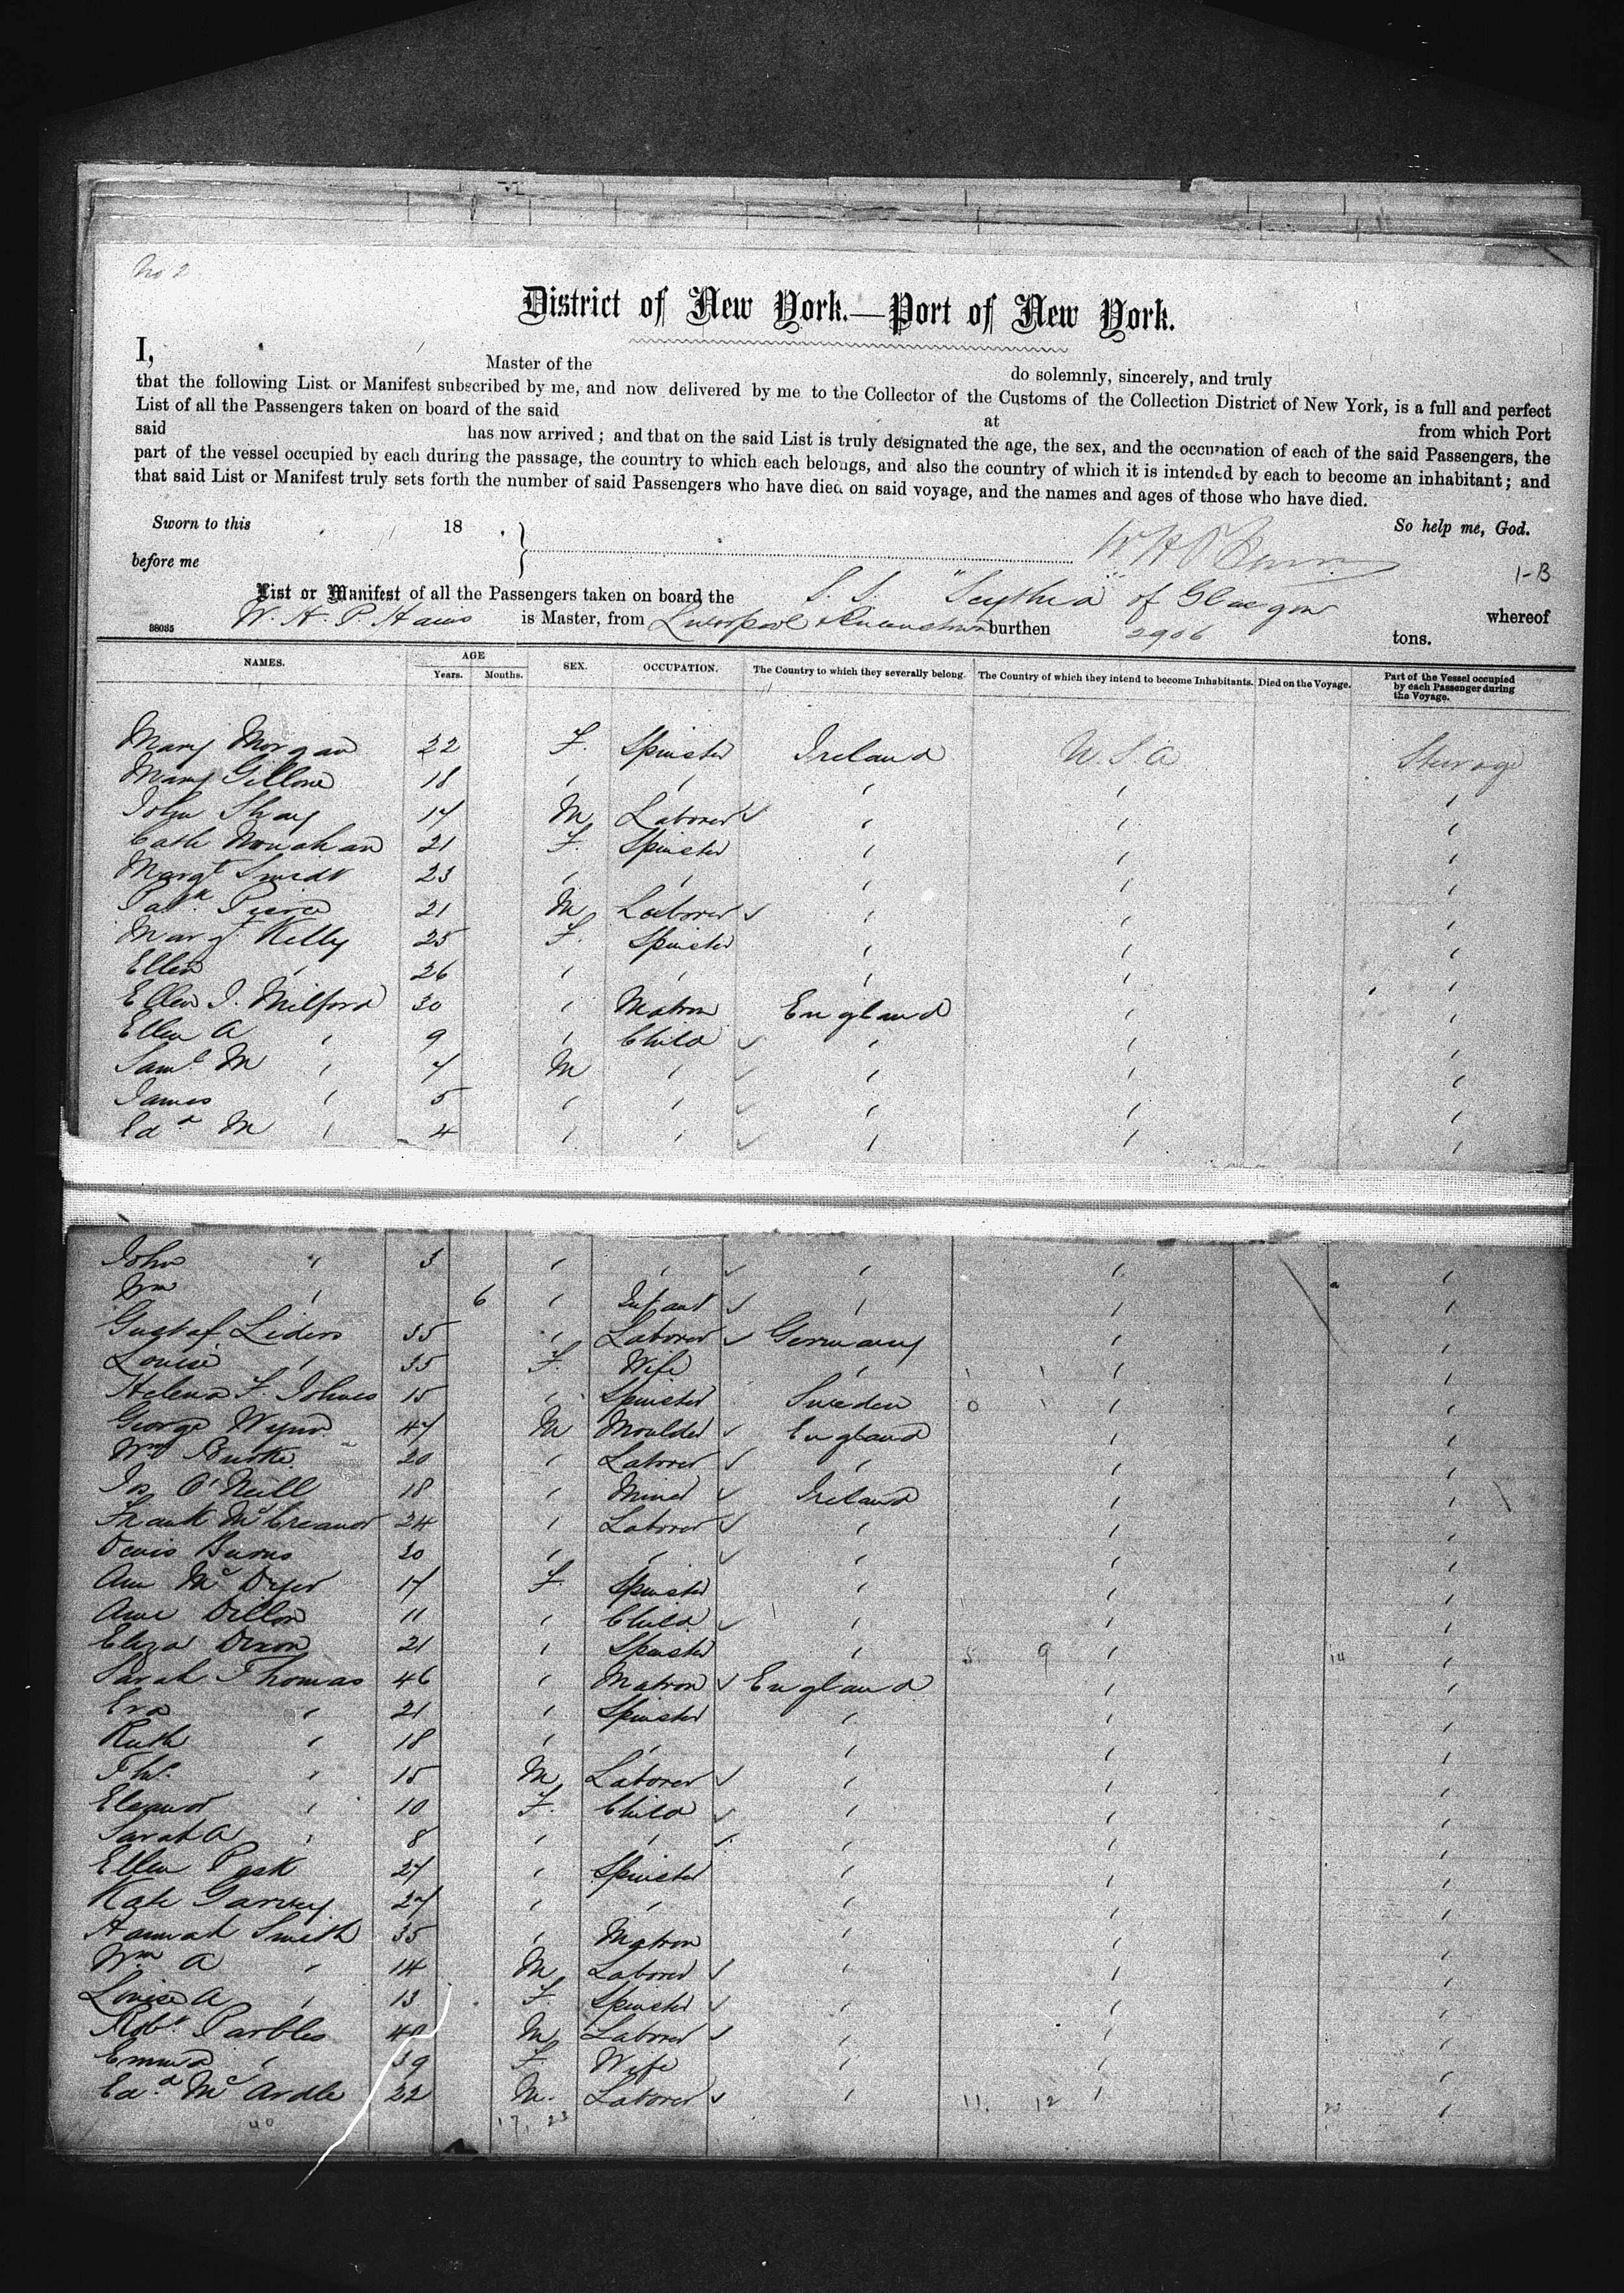 No 2
District of New York.—Port of New York.
I, Master of the do solemnly, sincerely, and truly
that the following List or Manifest subscribed by me, and now delivered by me to the Collector of the Customs of the Collection District of New York, is a full and perfect
List of all the Passengers taken on board of the said at from which Port
said has now arrived; and that on the said List is truly designated the age, the sex, and the occupation of each of the said Passengers, the
part of the vessel occupied by each during the passage, the country to which each belongs, and also the country of which it is intended by each to become an inhabitant; and
that said List or Manifest truly sets forth the number of said Passengers who have died on said voyage, and the names and ages of those who have died.
Sworn to this 18 . So help me, God.
before me
1-B
List or Manifest of all the Passengers taken on board the S. S. "Scythia" of Glasgow whereof
38035 W. H. P. Hains is Master, from Liverpool & Queenstown burthen 2906 tons.
NAMES. AGE Years. Months. SEX. OCCUPATION. The Country to which they severally belong. The Country of which they intend to become Inhabitants. Died on the Voyage. Part of the Vessel occupied by each Passenger during the Voyage.
Mary Morgan 22 F. Spinster Ireland U.S.A Steerage
Mary Gillone 18 " " " " "
John Shay 17 M Laborer ✓ " " "
Cath Monahan 21 F. Spinster " " "
Margt Smidt 23 " " " " "
Patk Pierce 21 M Laborer ✓ " " "
Margt Kelly 25 F. Spinster " " "
Ellen " 26 " " " " "
Ellen J. Milford 30 " Matron England " "
Ellen A " 9 " Child ✓ " " "
Saml M " 7 M " ✓ " " "
James " 5 " " ✓ " " "
Edd M " 4 " " ✓ " " "
John " 3 " " ✓ " " "
Wm " 6 " Infant ✓ " " "
Gustaf Liders 35 " Laborer ✓ Germany " "
Louise " 35 F. Wife " " "
Helena F. Johnes 15 " Spinster Sweden " "
George Wynn 47 M Moulder ✓ England " "
Wm Burke 20 " Laborer ✓ " " "
Jas O'Neill 18 " Miner ✓ Ireland " "
Frank McCreanor 24 " Laborer ✓ " " "
Denis Burns 30 " " ✓ " " "
Ann McDyer 17 F. Spinster " " "
Anne Dillon 11 " Child ✓ " " "
Eliza Dixon 21 " Spinster " 5 9 " 14 "
Sarah Thomas 46 " Matron ✓ England " "
Eva " 21 " Spinster " " "
Ruth " 18 " " " " "
Ths. " 15 M Laborer ✓ " " "
Eleanor " 10 F. Child ✓ " " "
Sarah A " 8 " " ✓ " " "
Ellen Pask 27 " Spinster " " "
Kate Garvey 27 " " " " "
Hannah Smith 35 " Matron " " "
Wm A " 14 M Laborer ✓ " " "
Louisa A " 13 F. Spinster ✓ " " "
Robt. Parbles 40 M Laborer ✓ " " "
Emma " 39 F. Wife " " "
Edd McArdle 22 M. Laborer ✓ " 11. 12 " "
40 17, 23